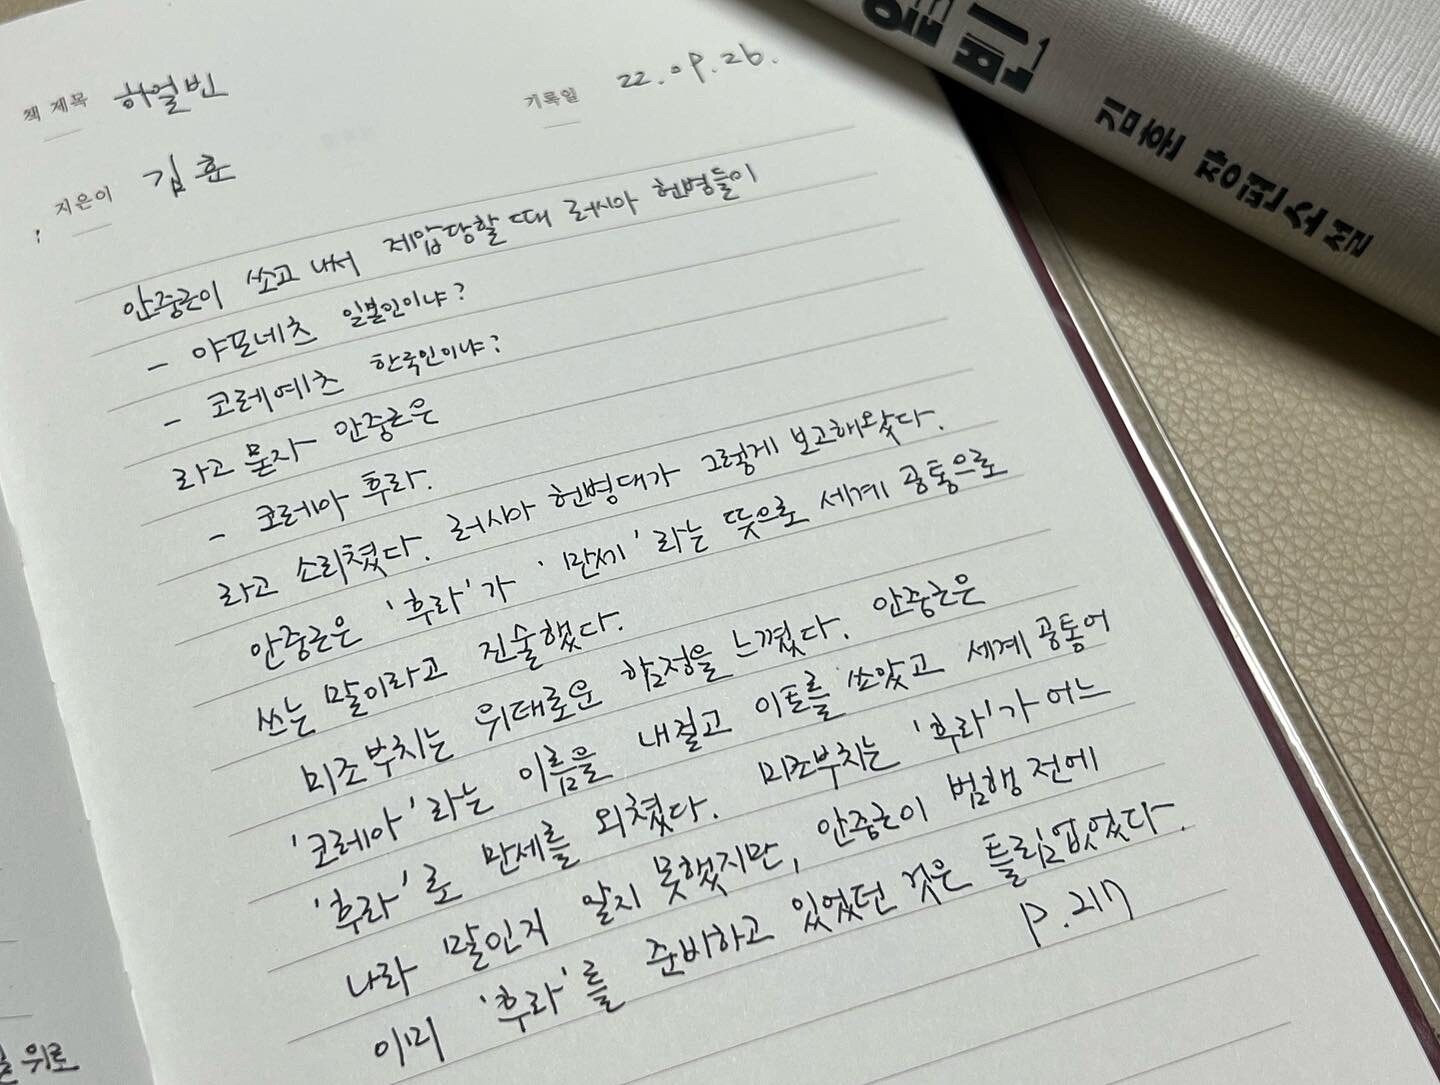 책 제목 하얼빈
기록일 22.09.26.
지은이 김훈
안중근이 쏘고 나서 제압당할 때 러시아 헌병들이
- 야포네츠 일본인이냐?
- 코레예츠 한국인이냐?
라고 묻자 안중근은
- 코레아 후라.
라고 소리쳤다. 러시아 헌병대가 그렇게 보고해왔다.
안중근은 '후라'가 '만세'라는 뜻으로 세계 공통으로
쓰는 말이라고 진술했다.
미조부치는 위태로운 함정을 느꼈다. 안중근은
'코레아'라는 이름을 내걸고 이토를 쏘았고 세계 공통어
'후라'로 만세를 외쳤다. 미조부치는 '후라'가 어느
나라 말인지 알지 못했지만, 안중근이 범행 전에
미리 '후라'를 준비하고 있었던 것은 틀림없었다.
p.217
위로
얼빈
김훈 장편소설